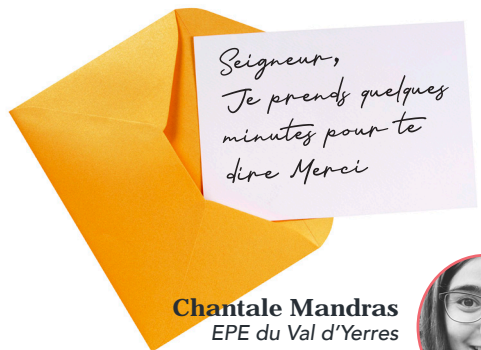 Seigneur,
Je prends quelques
minutes pour te
dire Merci
Chantale Mandras
EPE du Val d'Yerres